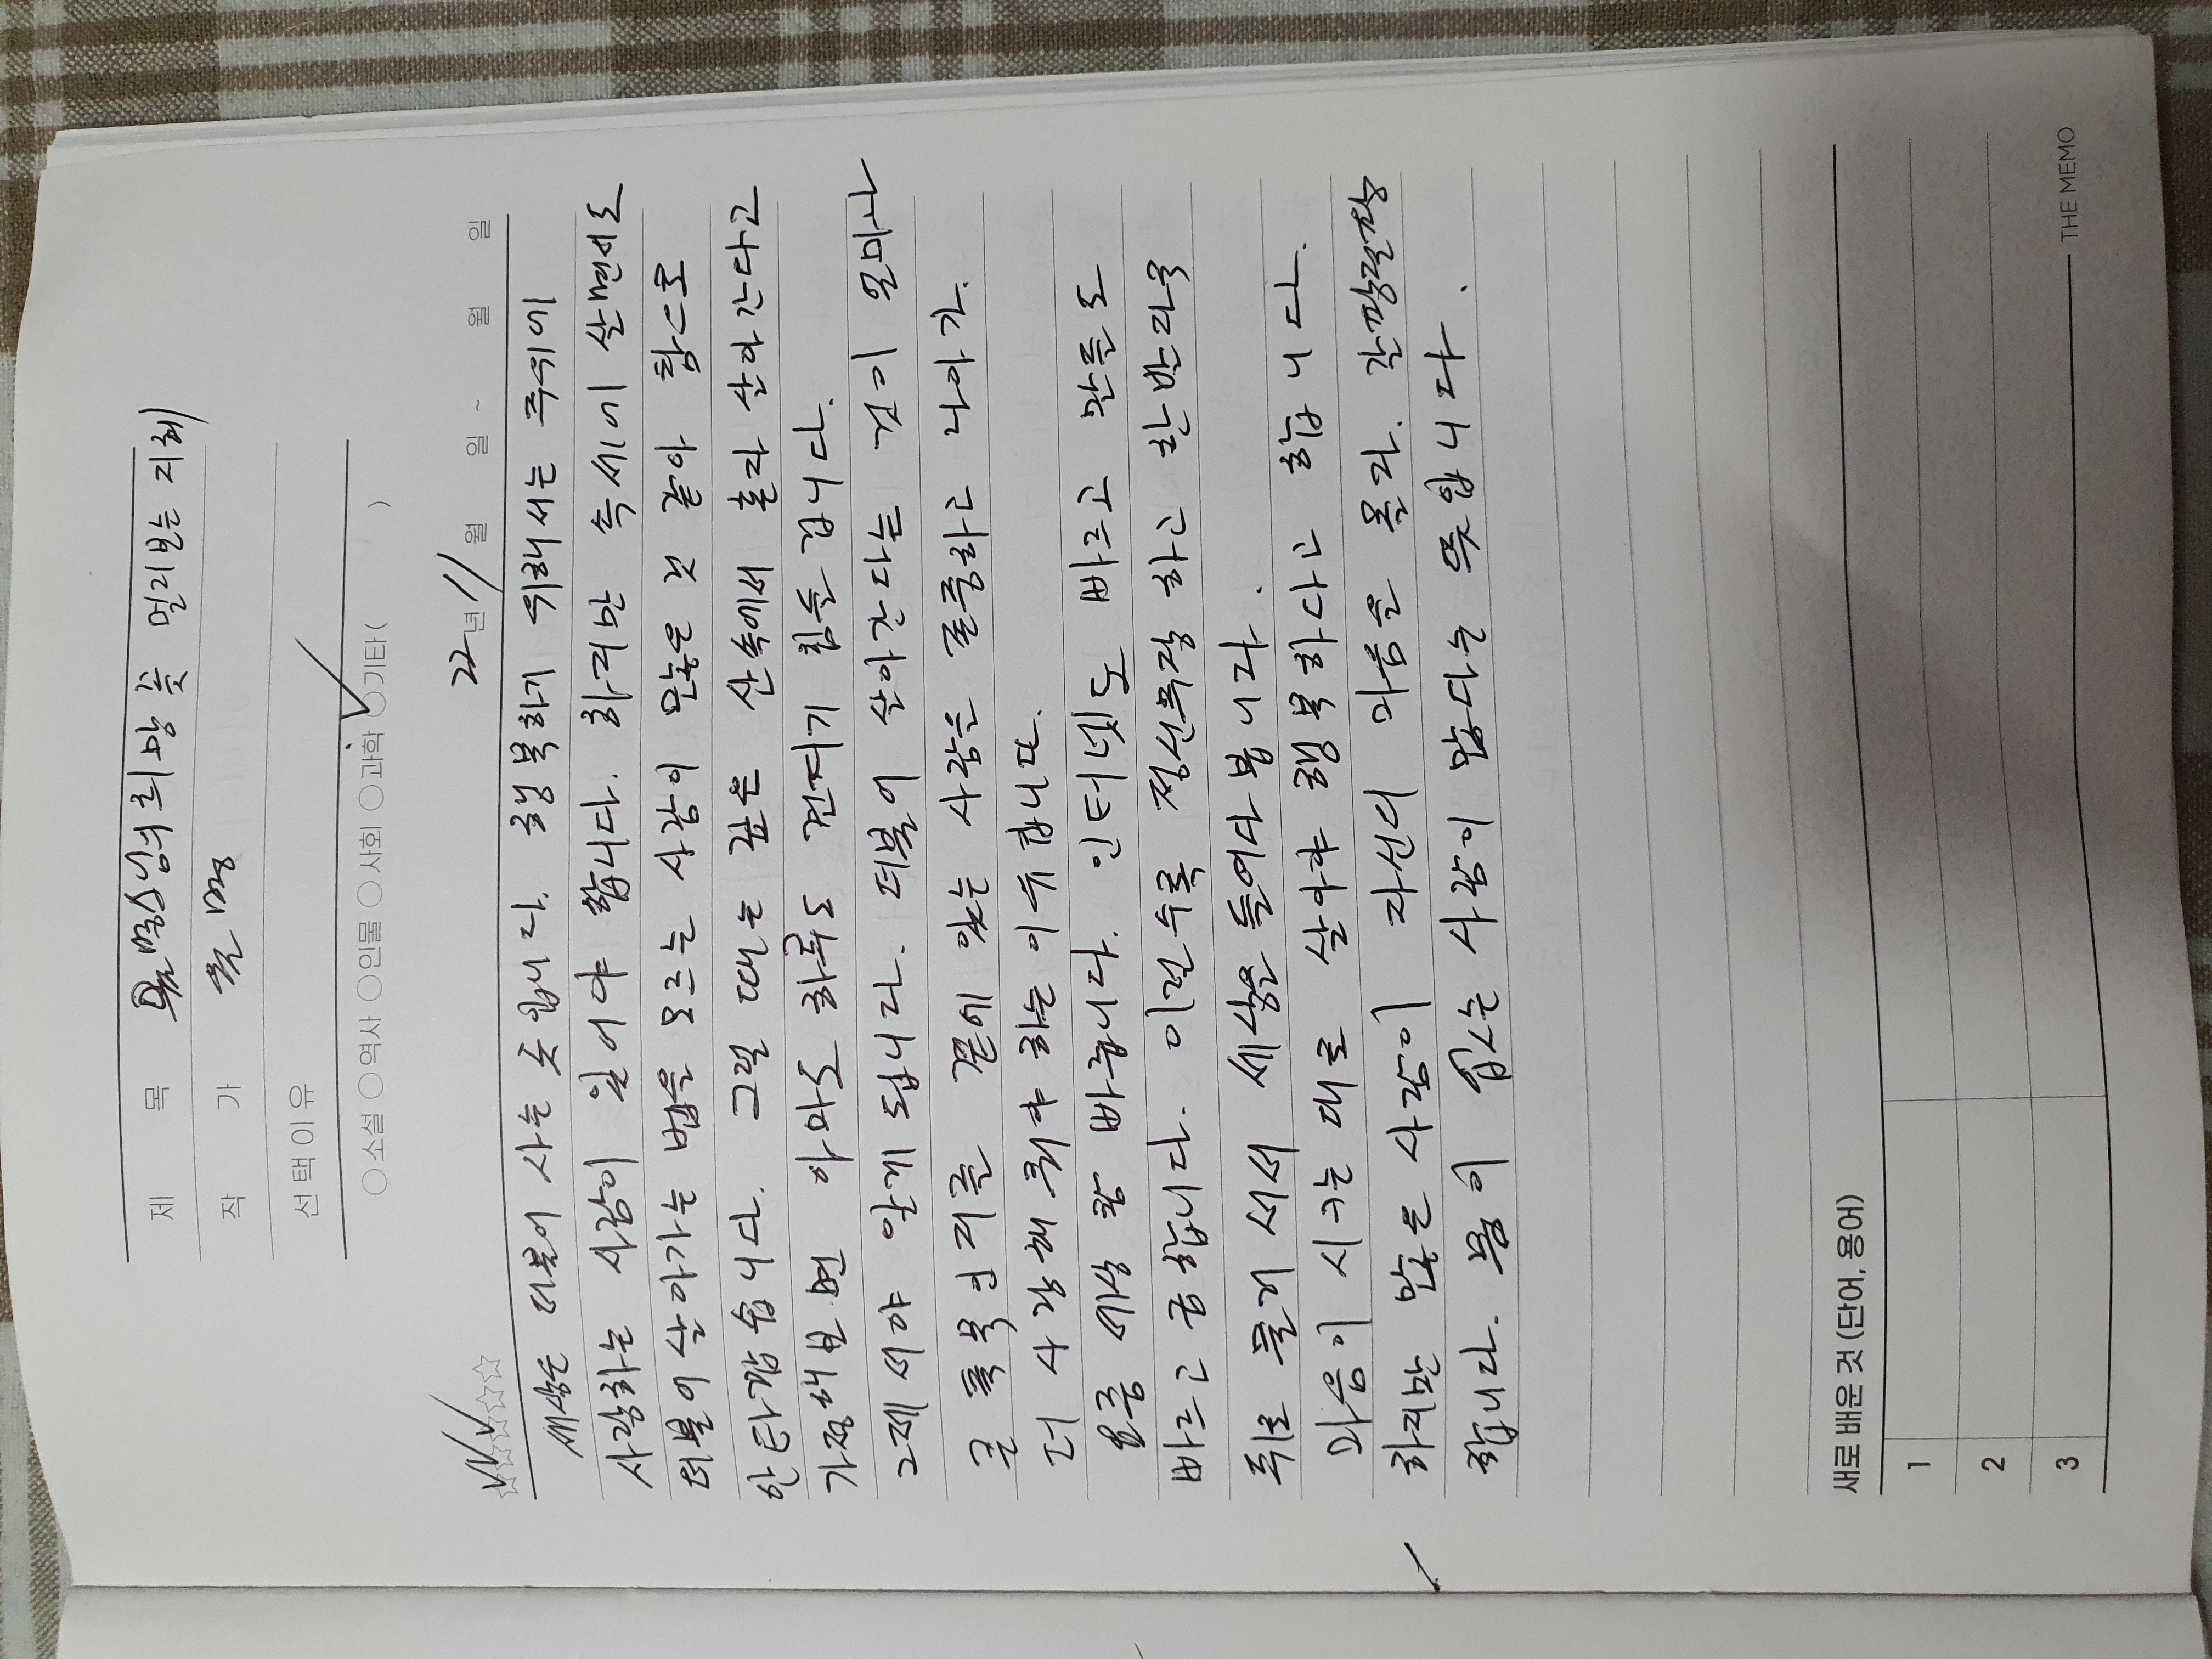 제 목 월명스님의 희망 꽃 멀리보는 지혜
작 가 월명
선택이유
○소설 ○역사 ○인물 ○사회 ○과학 ○기타( )
22년 11월 일 ~ 월 일
세상은 더불어 사는 곳입니다. 행복하기 위해서는 주위에
사랑하는 사람이 있어야 합니다. 하지만 속세에 살면서도
더불어 살아가는 법을 모르는 사람이 많은 것 같아 참으로
안타깝습니다. 그럴 때는 깊은 산속에서 혼자 살아간다고
가정해보면 아마도 하루도 견디기 힘들 겁니다.
그제서야 알게 됩니다. 더불어 살아간다는 것이 얼마나
큰 축복인지를 곁에 있는 사람을 존중하고 나아가.
더 사랑해 줘야 하는 이유입니다.
요즘 세상 참 빠릅니다. 인터넷도 빠르고 말들도
빠르고 급합니다. 이럴수록 정신무장 하고 한발자국
뒤로 물러 서서 세상을 들여다 봅니다.
마음이 시키는 대로 살아야 행복하다고 합니다.
하지만 많은 사람이 자신의 마음을 몰라. 갈팡질팡
합니다. 꿈이 없는 사람이 많다는 뜻입니다.
새로 배운 것 (단어, 용어)
1
2
3
THE MEMO